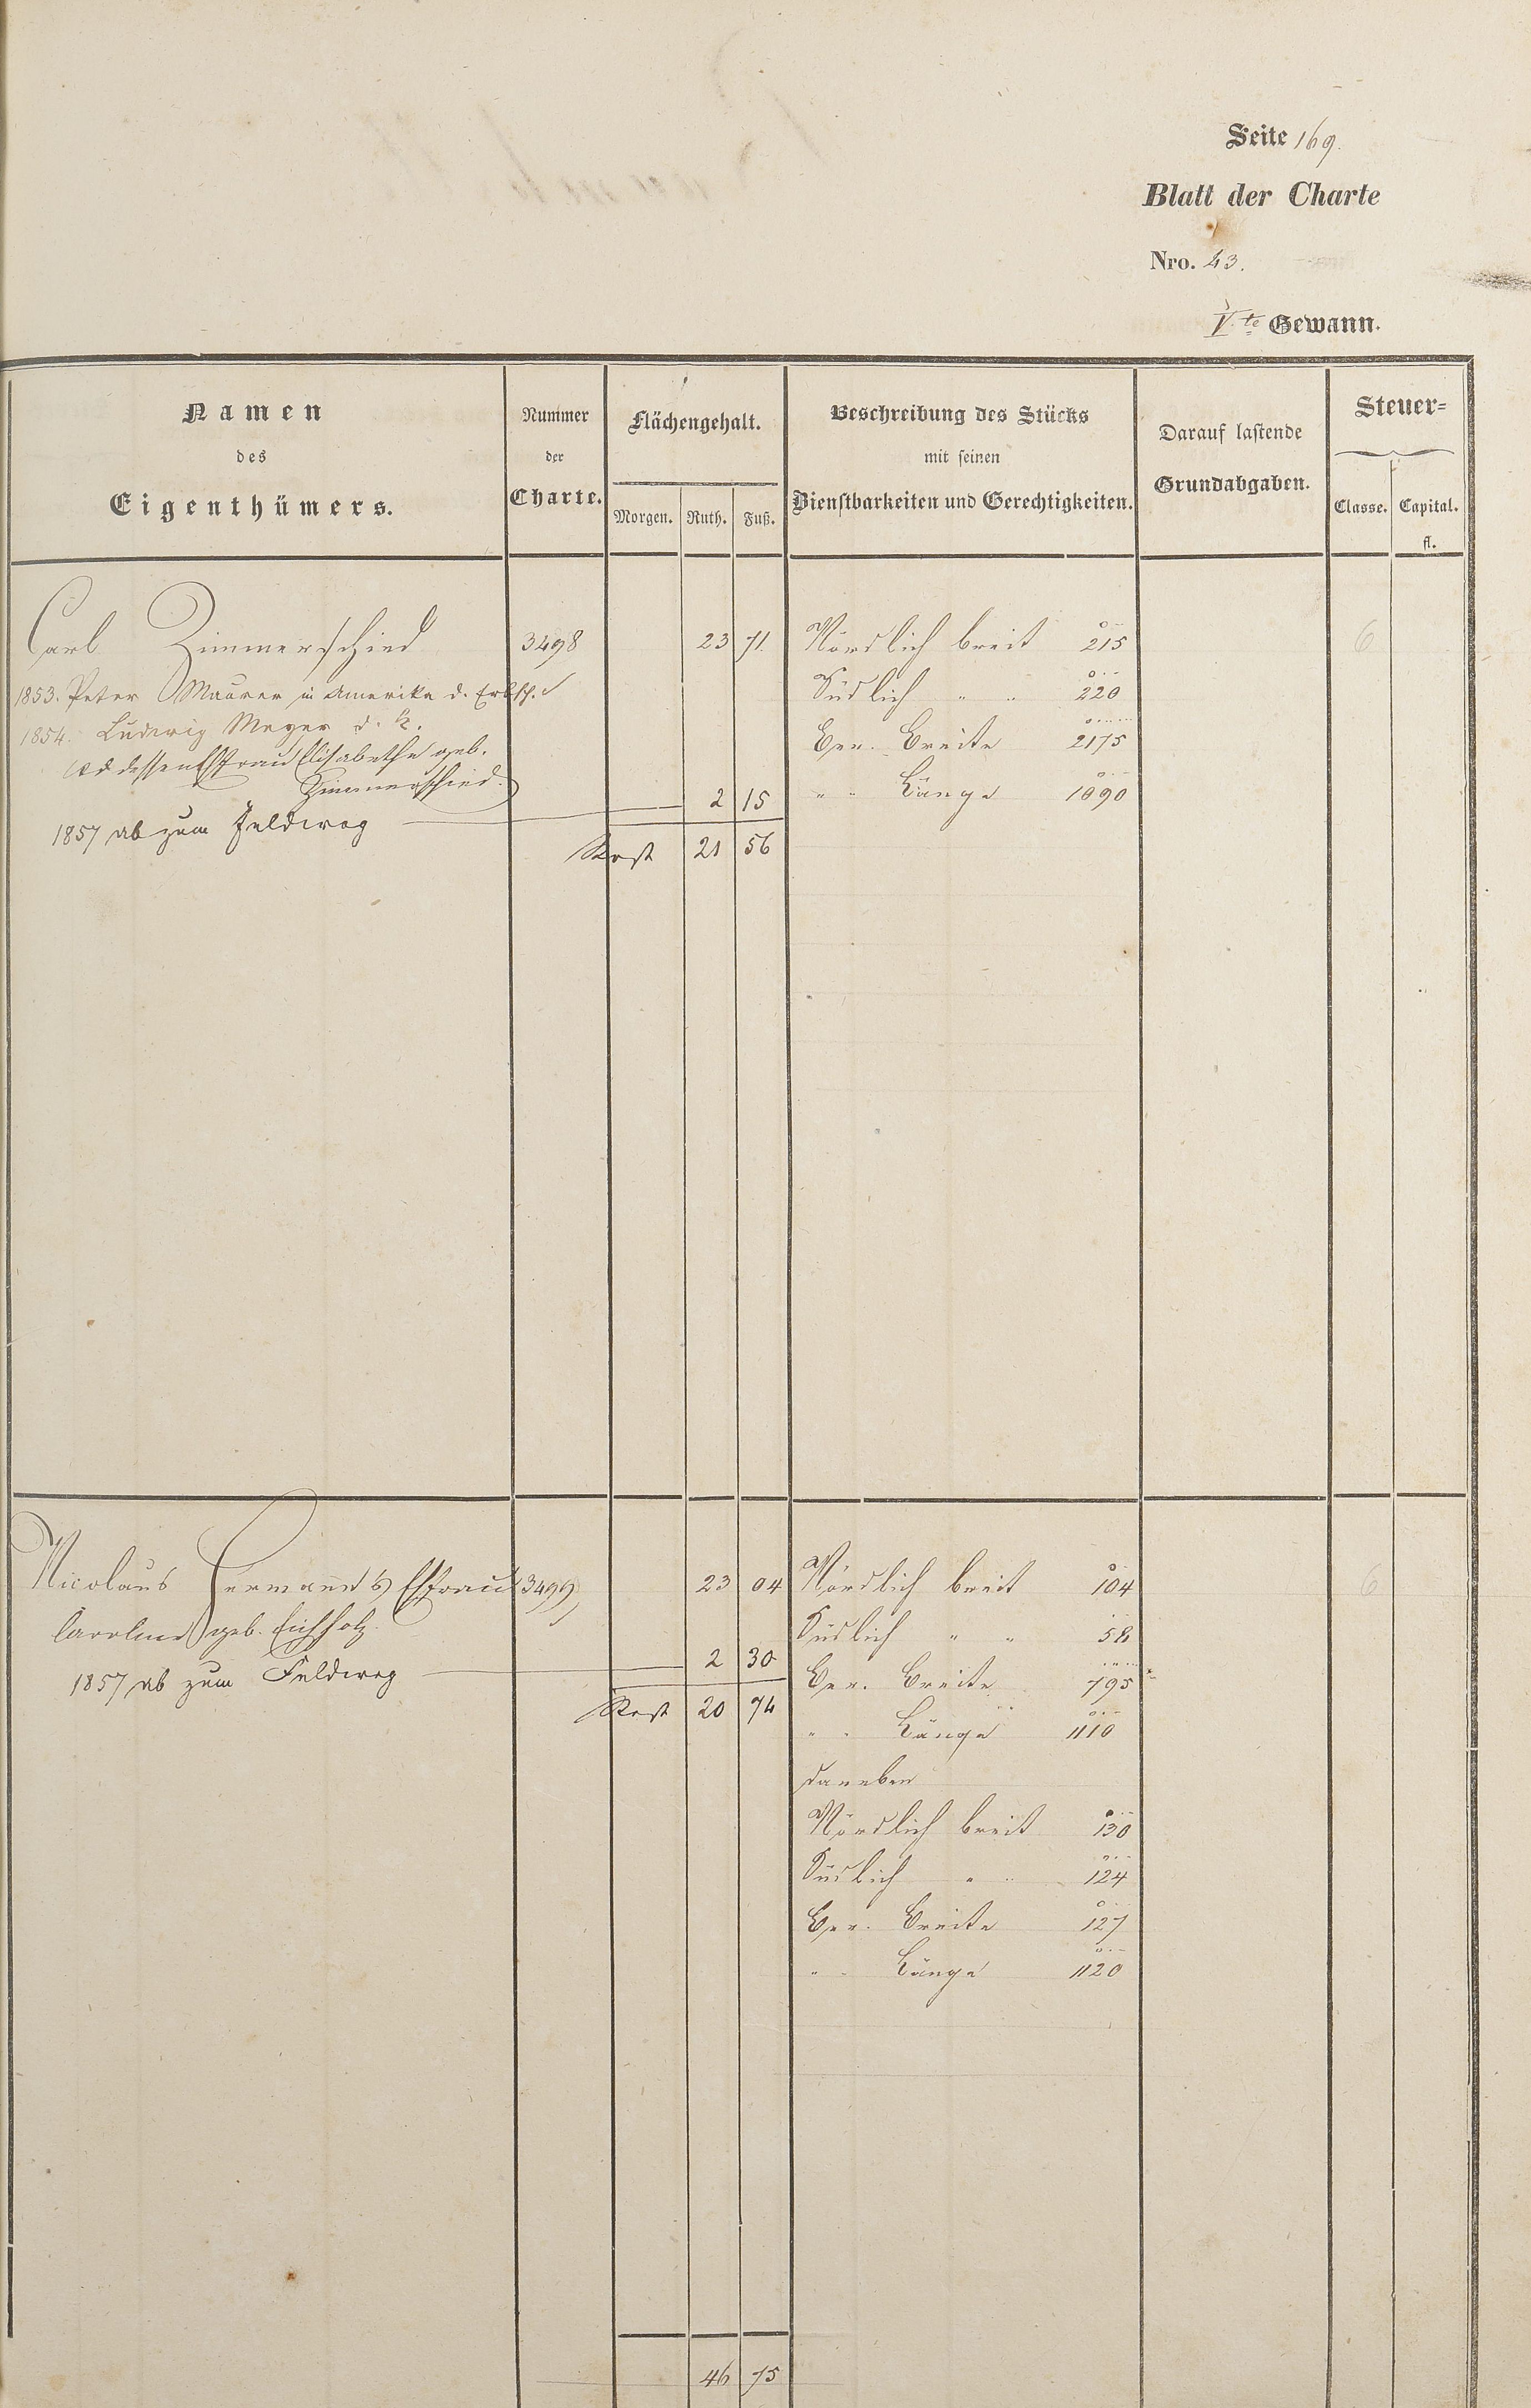 Seite 169.
Blatt der Charte
Nro. 43.
Vte Gewann.
Namen
des
Eigenthümers.
Nummer
der
Charte.
Flächengehalt.
Morgen. Ruth. Fuß.
Beschreibung des Stücks
mit seinen
Dienstbarkeiten und Gerechtigkeiten.
Darauf lastende
Grundabgaben.
Steuer=
Classe. Capital.
fl.
Carl Zimmerschied 3498 23 71 Nördlich breit 215 6
1853. Peter Maurer in Amerika d. Erbsch. Südlich " " 220
1854. Ludwig Meyer d. K. Ger. Breite 2175
und dessen Ehfrau Elisabetha geb.
Zimmerschied. 2 15 " " Länge 1090
1857 ab zum Feldweg
Rest 21 56
Nicolaus Hermann's Ehfrau 3499 23 04 Nördlich breit 104 6
Caroline geb. Eichholz Südlich " " 58
1857 ab zum Feldweg 2 30 Ger. Breite 795
Rest 20 74 " " Länge 1110
daneben
Nördlich breit 130
Südlich " " 124
Ger. Breite 127
" " Länge 1120
46 75